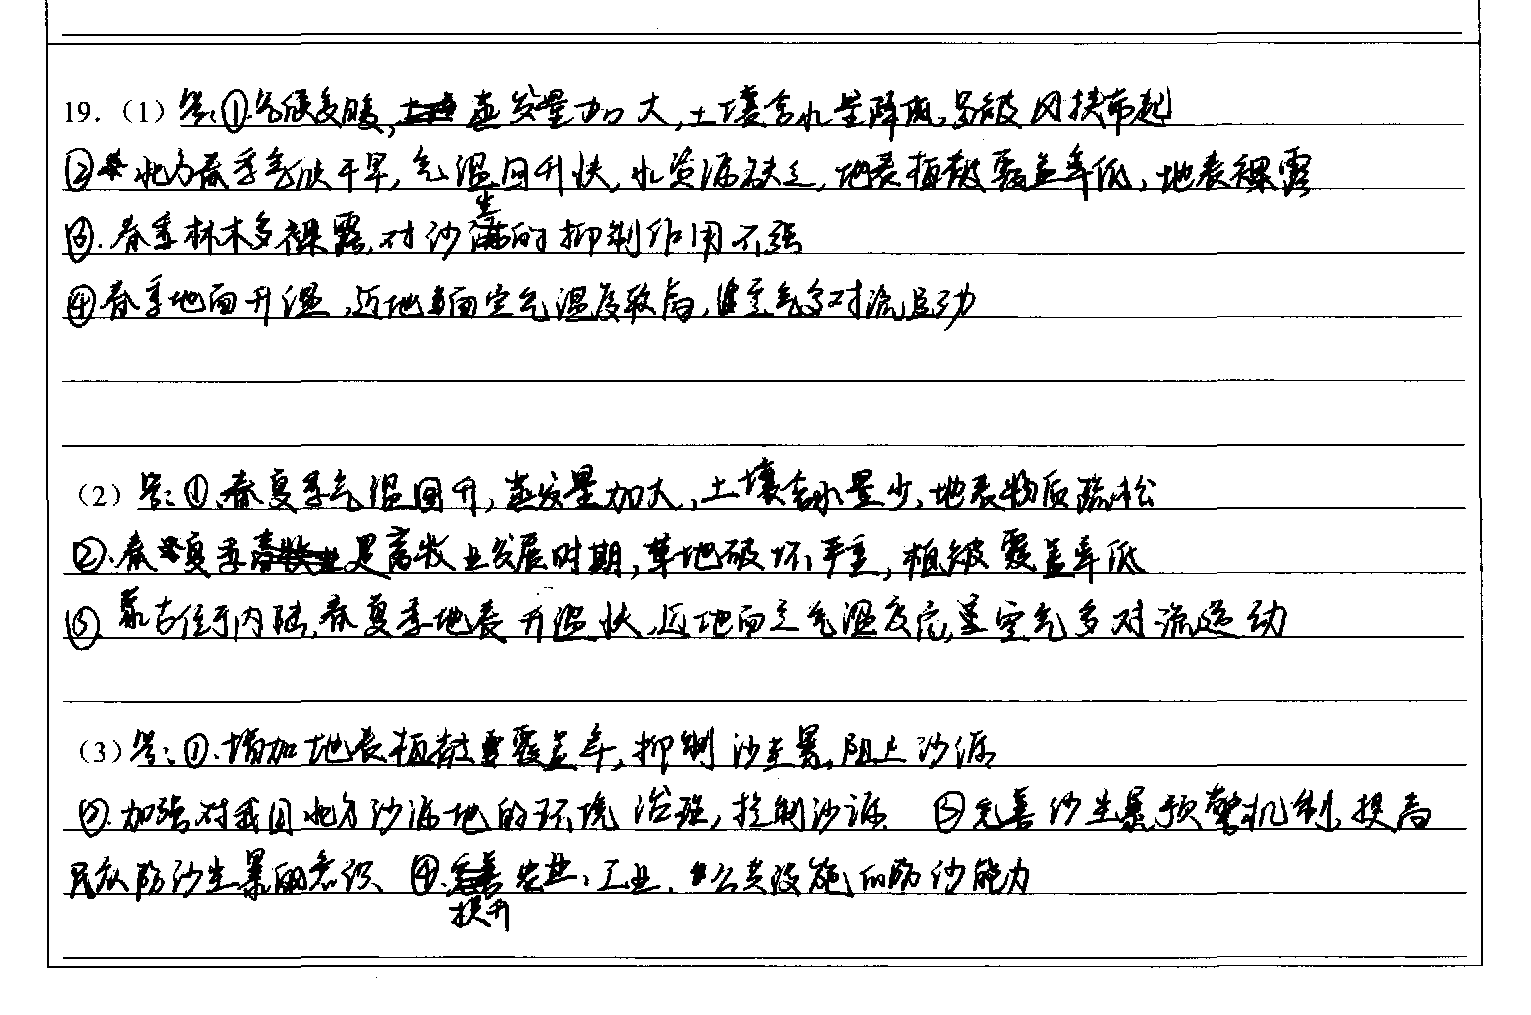 19.（1）答:①气候变暖,蒸发量加大,土壤含水量降低,易被风扶带起
②北方春季气候干旱,气温回升快,水资源缺乏,地表植被覆盖率低,地表裸露
③.春季林木多裸露,对沙尘的抑制作用不强
④春季地面升温,近地面空气温度较高,空气多对流运动
（2）答:①.春夏季气温回升,蒸发量加大,土壤含水量少,地表物质疏松
②.春夏季是畜牧业发展时期,草地破坏严重,植被覆盖率低
③.蒙古位于内陆,春夏季地表升温快,近地面空气温度高,空气多对流运动
（3）答:①.增加地表植被覆盖率,抑制沙尘暴,阻止沙源
②.加强对我国北方沙源地的环境治理,控制沙源 ③完善沙尘暴预警机制,提高
民众防沙尘暴的意识 ④.提升农业、工业、公共设施的防沙能力